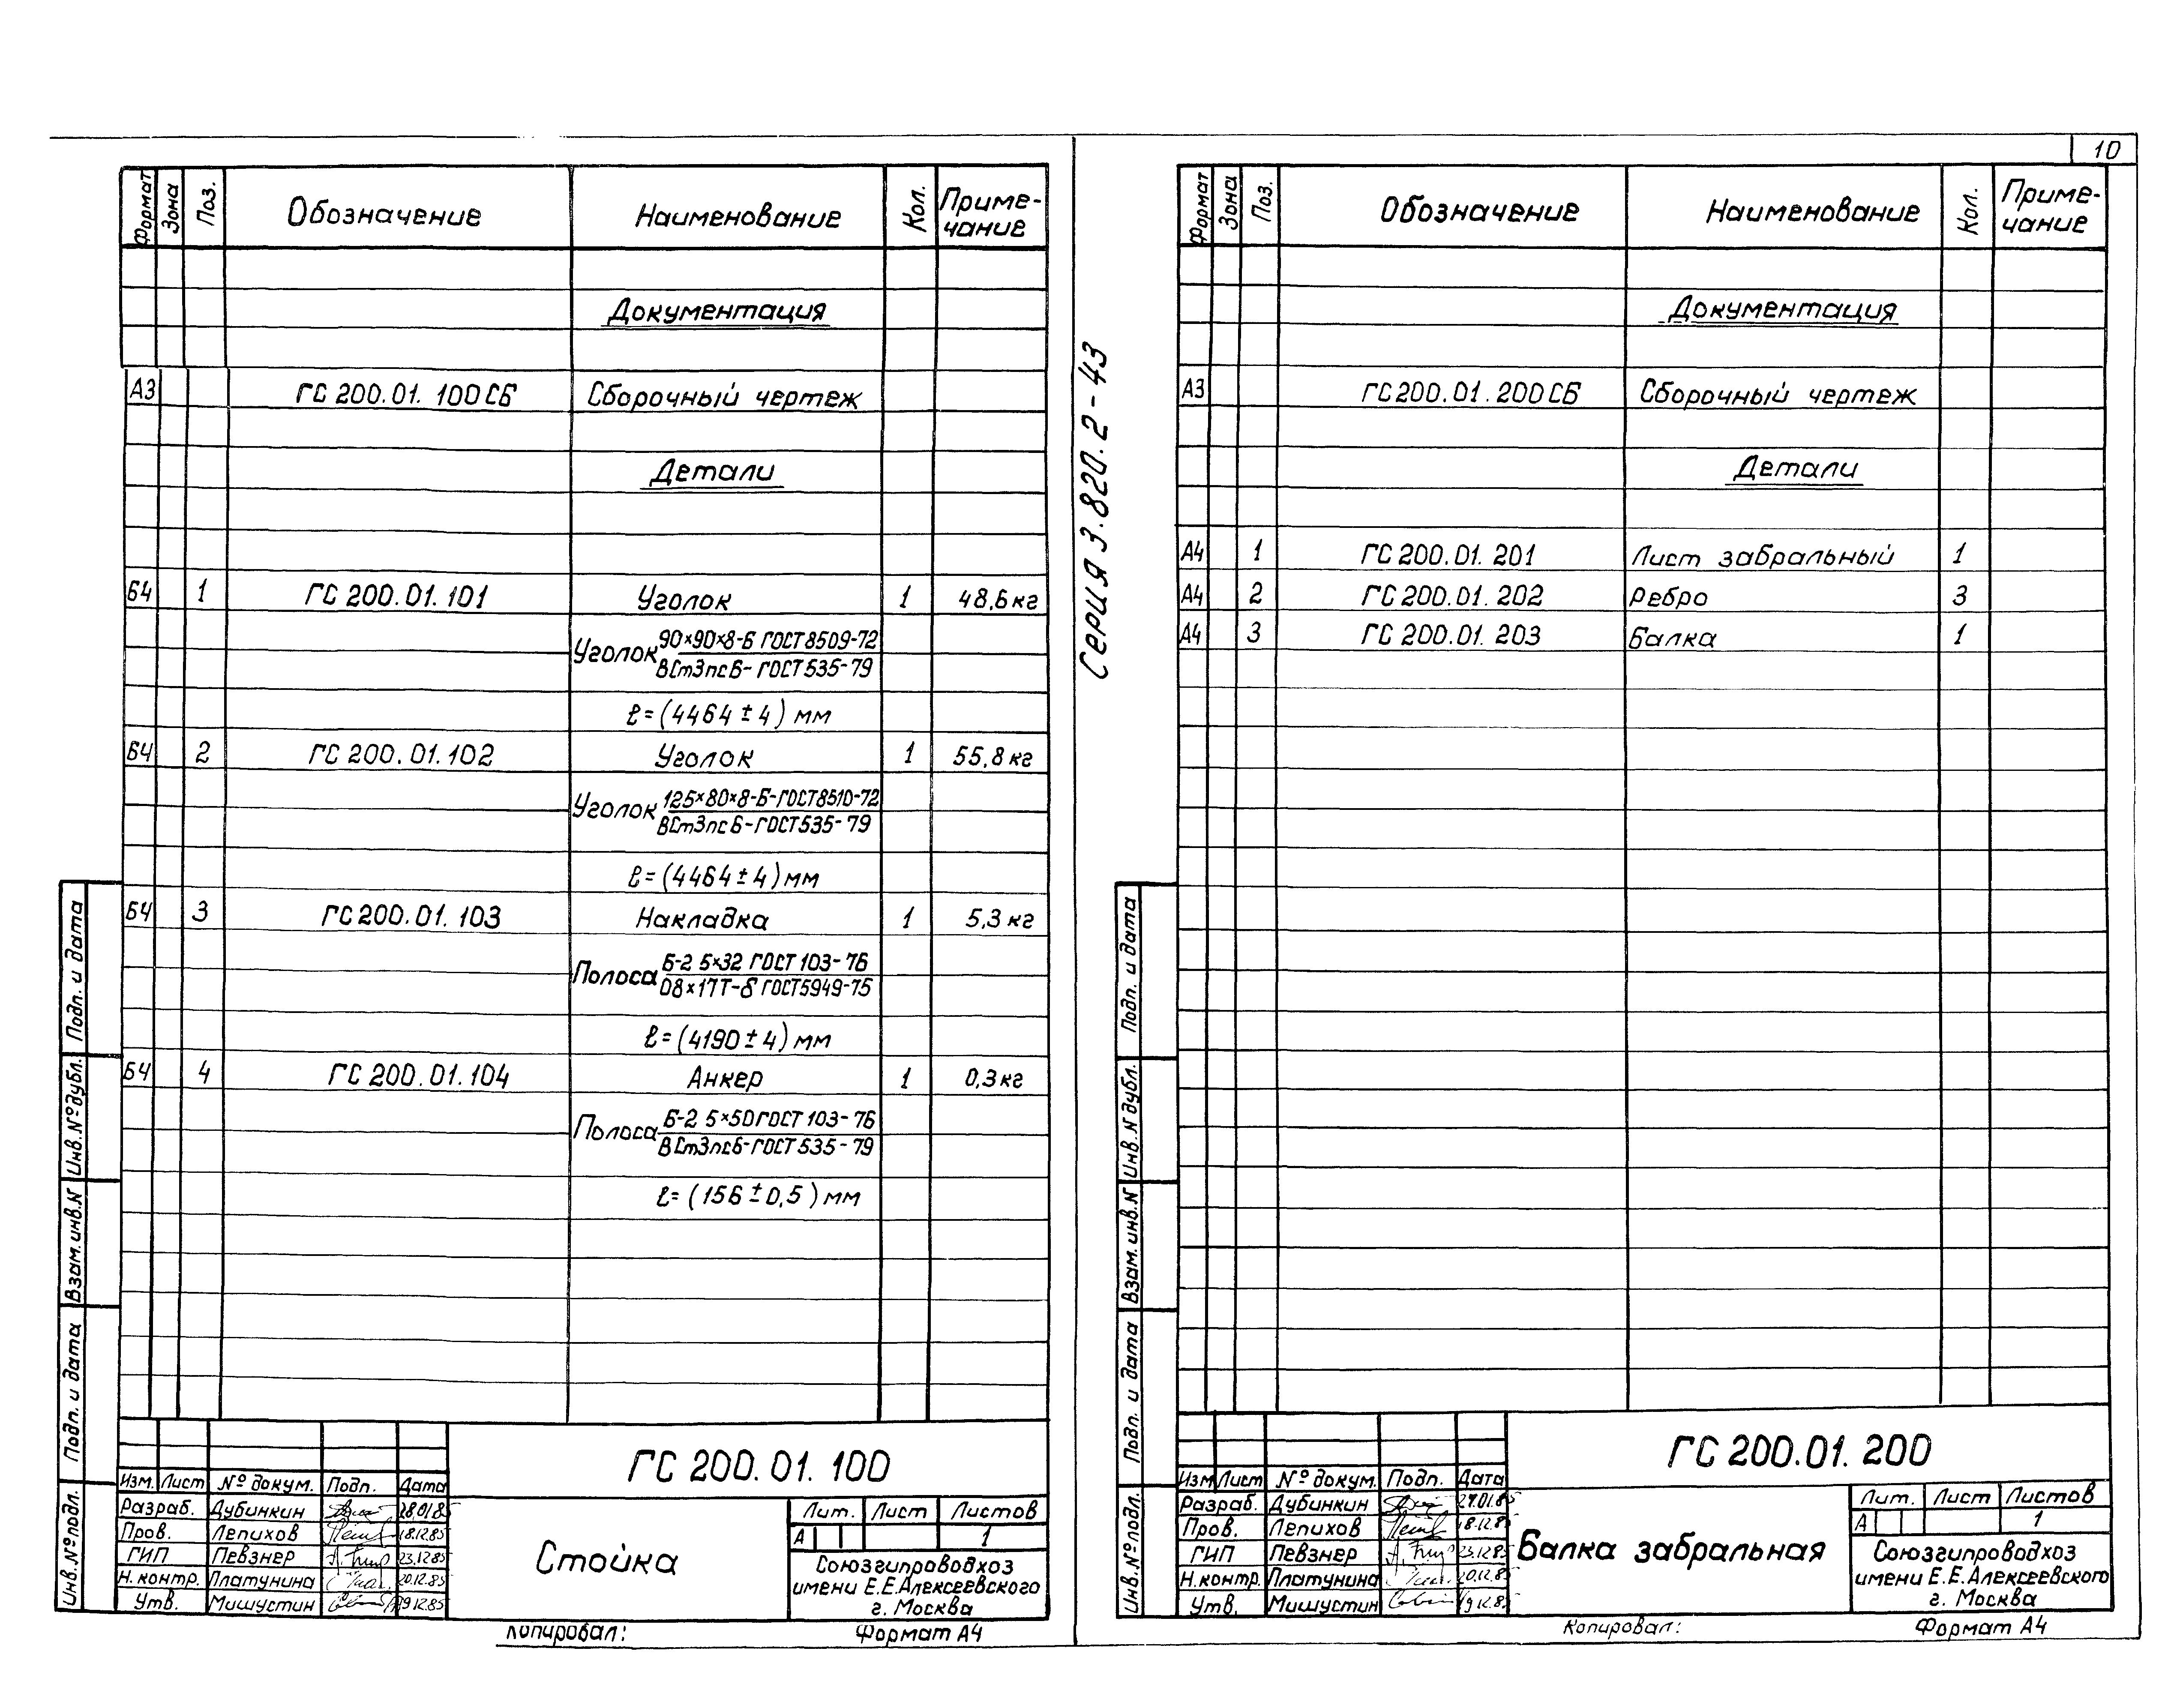 10
Формат Зона Поз. Обозначение Наименование Кол. Приме-
чание
Документация
А3 ГС 200.01. 100 СБ Сборочный чертеж
Детали
Б4 1 ГС 200.01.101 Уголок 1 48,6 кг
Уголок 90×90×8-Б ГОСТ 8509-72
ВСт3пс6- ГОСТ 535-79
ℓ=(4464±4) мм
Б4 2 ГС 200.01.102 Уголок 1 55,8 кг
Уголок 125×80×8-Б-ГОСТ8510-72
ВСт3пс6-ГОСТ535-79
ℓ=(4464±4) мм
Б4 3 ГС 200.01.103 Накладка 1 5,3 кг
Полоса Б-2 5×32 ГОСТ 103-76
08×17Т-б ГОСТ5949-75
ℓ=(4190±4) мм
Б4 4 ГС 200.01.104 Анкер 1 0,3 кг
Полоса Б-2 5×50 ГОСТ 103-76
ВСт3пс6-ГОСТ 535-79
ℓ=(156±0,5) мм
Подп. и дата
Инв. № дубл.
Взам. инв. N
Подп. и дата
Инв. № подл.
ГС 200.01.100
Изм. Лист № докум. Подп. Дата
Разраб. Дубинкин 28.01.85
Пров. Лепихов 18.12.85
ГИП Певзнер 23.12.85
Н.контр. Платунина 20.12.85
Утв. Мишустин 19.12.85
Стойка
Лит. Лист Листов
А 1
Союзгипроводхоз
имени Е.Е.Алексеевского
г. Москва
Копировал: Формат А4
Серия 3.820.2-43
Формат Зона Поз. Обозначение Наименование Кол. Приме-
чание
Документация
А3 ГС 200.01.200 СБ Сборочный чертеж
Детали
А4 1 ГС 200.01.201 Лист забральный 1
А4 2 ГС 200.01.202 Ребро 3
А4 3 ГС 200.01.203 Балка 1
Подп. и дата
Инв. N дубл.
Взам. инв. N
Подп. и дата
Инв. № подл.
ГС 200.01.200
Изм Лист № докум. Подп. Дата
Разраб. Дубинкин 27.01.85
Пров. Лепихов 18.12.85
ГИП Певзнер 23.12.85
Н.контр. Платунина 20.12.85
Утв. Мишустин 19.12.85
Балка забральная
Лит. Лист Листов
А 1
Союзгипроводхоз
имени Е.Е.Алексеевского
г. Москва
Копировал: Формат А4